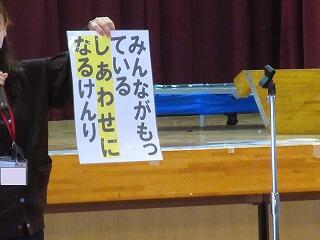 みんながもっ
ている
しあわせに
なるけんり